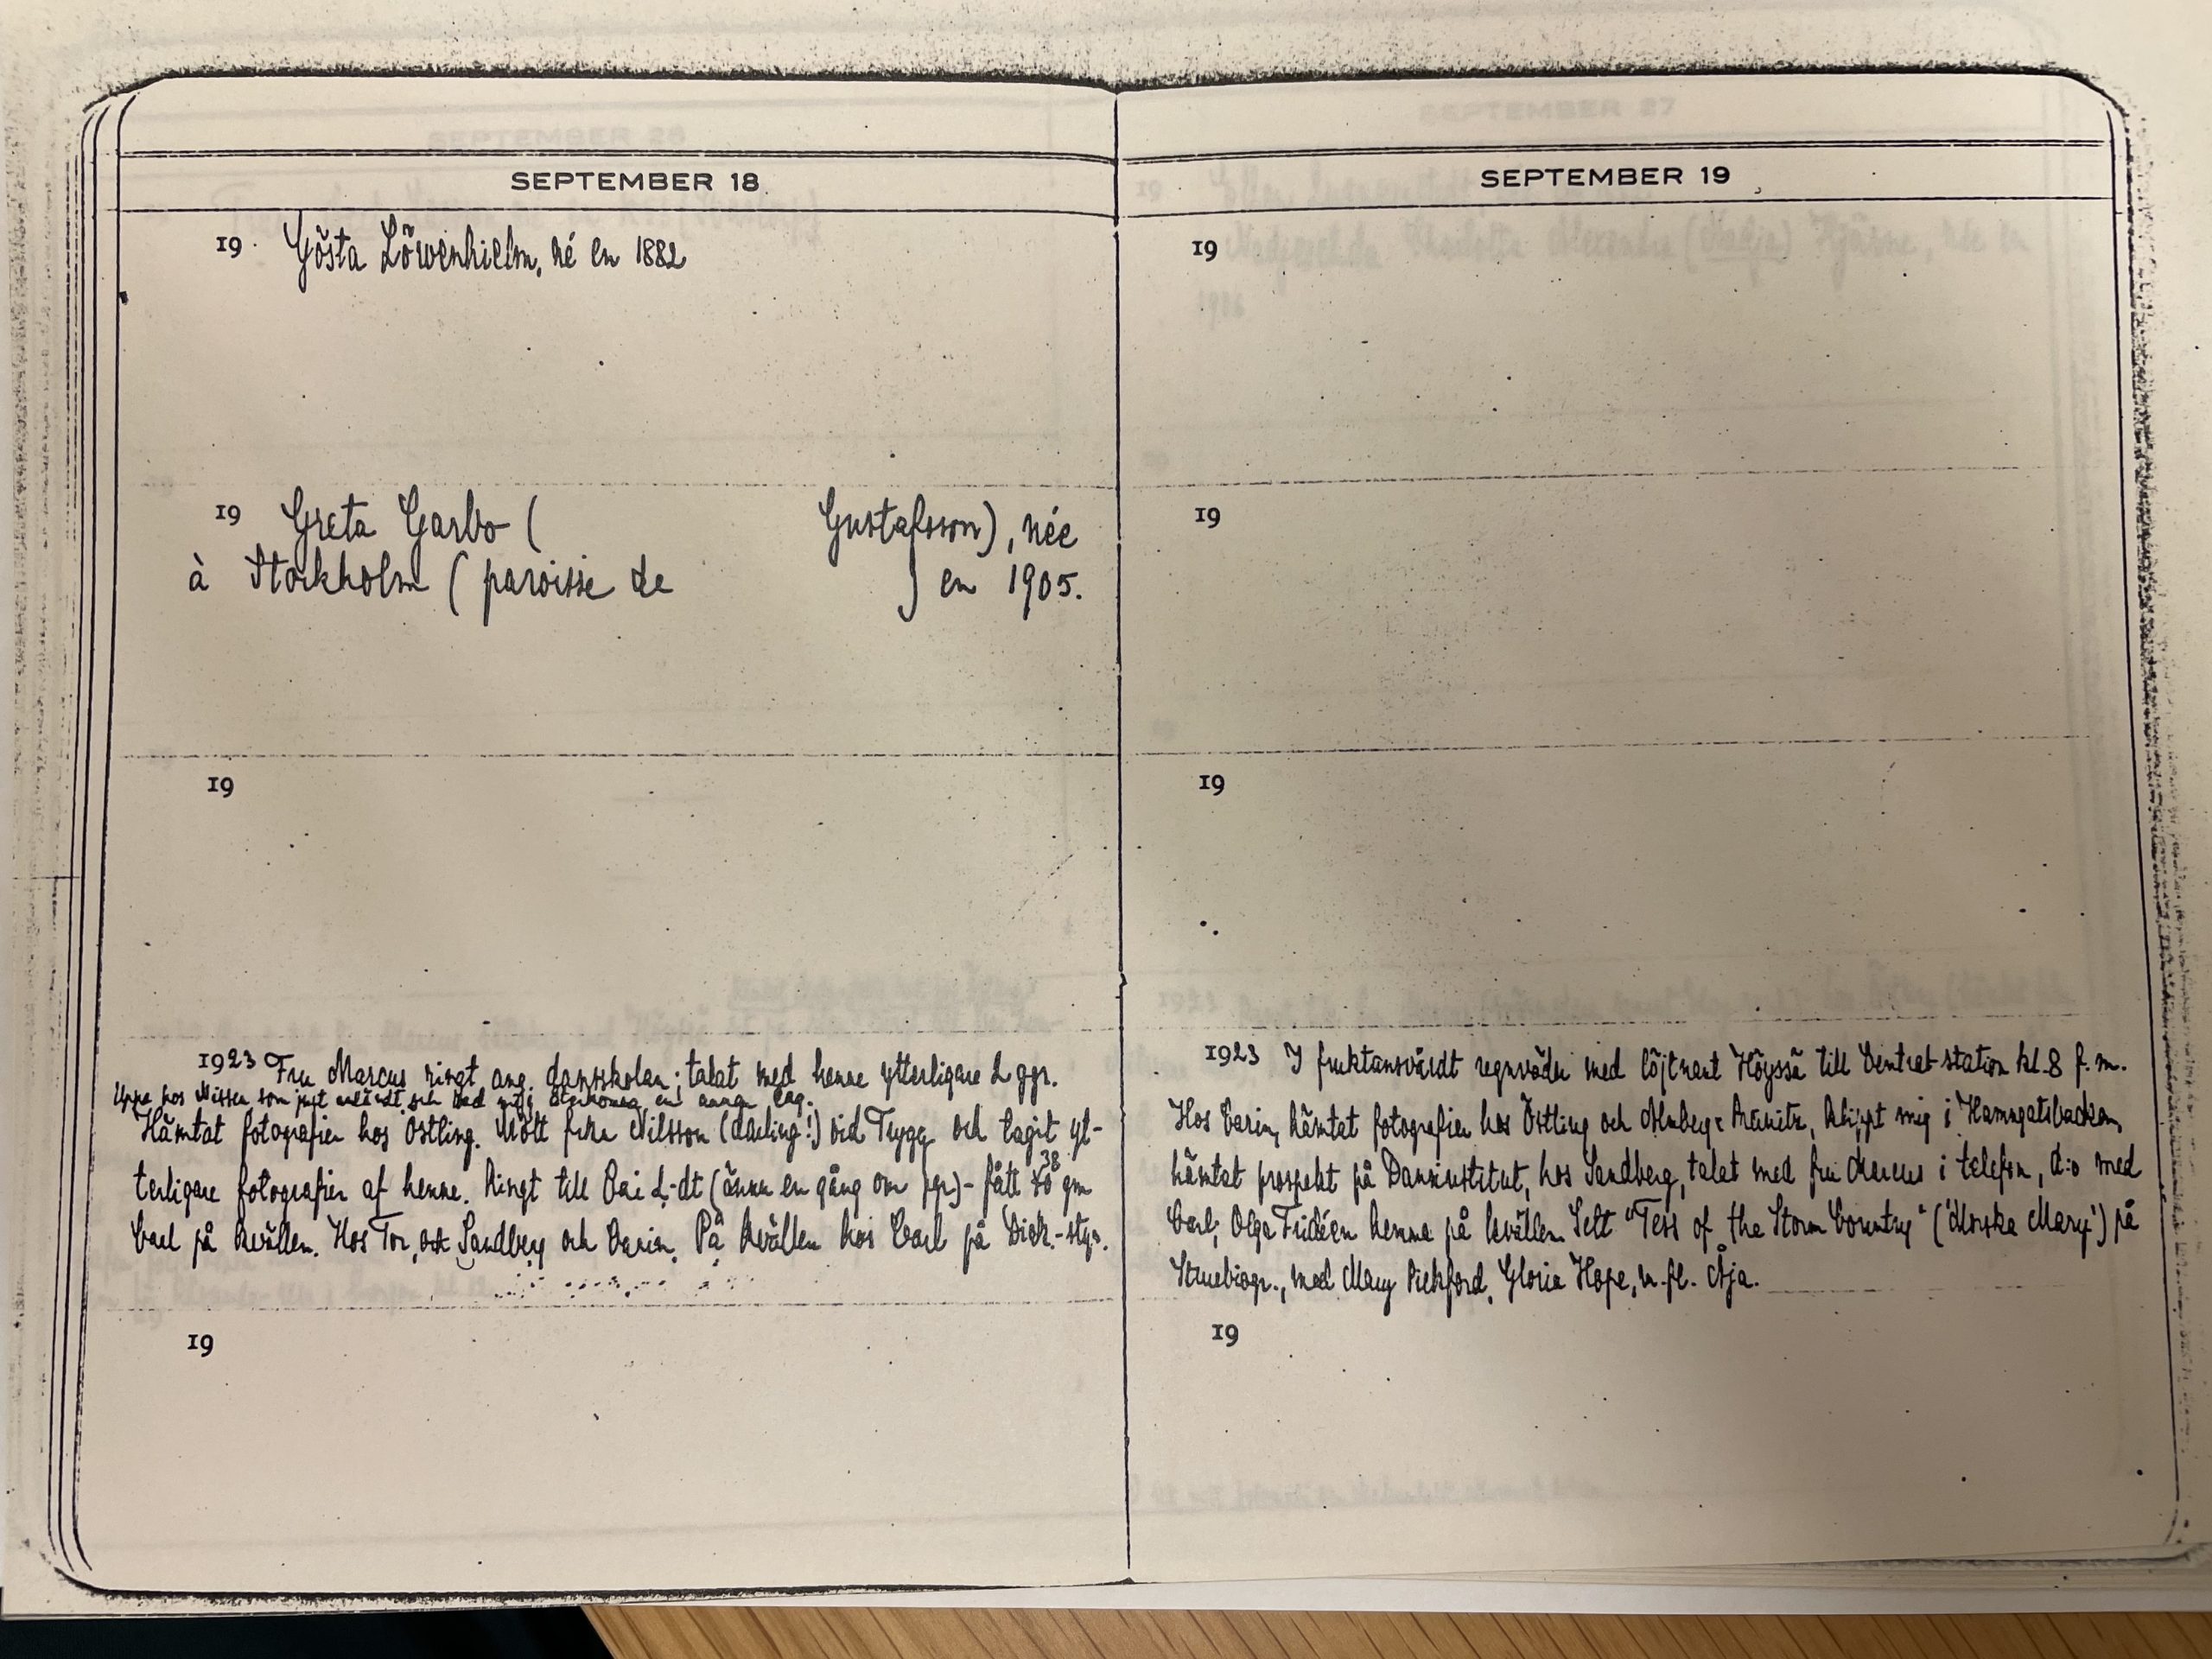 SEPTEMBER 18
19 Gösta Löwenhielm, né en 1882
19 Greta Garbo ( Gustafsson), née
à Stockholm (paroisse de ) en 1905.
19
1923 Fru Marcus ringt ang. dansskolan; talat med henne ytterligare 2 ggr.
Uppe hos Nissen som just och bad mig återkomma en annan dag.
Hämtat fotografier hos Östling. Mött frkn Nilsson (darling!) vid Trygg och tagit yt-
terligare fotografier af henne. Ringt till Cai L-dt (ännu en gång om pgr)- fått 38 gm
Carl på kvällen. Hos Tor, Sandberg och Carin. På kvällen hos Carl på Dick.-styr.
19
SEPTEMBER 19
19
19
19
1923 I fruktansvärdt regnväder med löjtnant Höyssä till Central station kl. 8 f.m.
Hos Carin, hämtat fotografier hos Östling och Almberg & Preinitz, klippt mig i Hamngatsbacken,
hämtat prospekt på Dansinstitut, hos Sandberg, talat med fru Marcus i telefon, d:o med
Carl; Olga Fridéen hemma på kvällen. Sett "Tess of the Storm Country" ("Morska Mary") på
Sturebiogr., med Mary Pickford, Gloria Hope, m. fl. Aja.
19